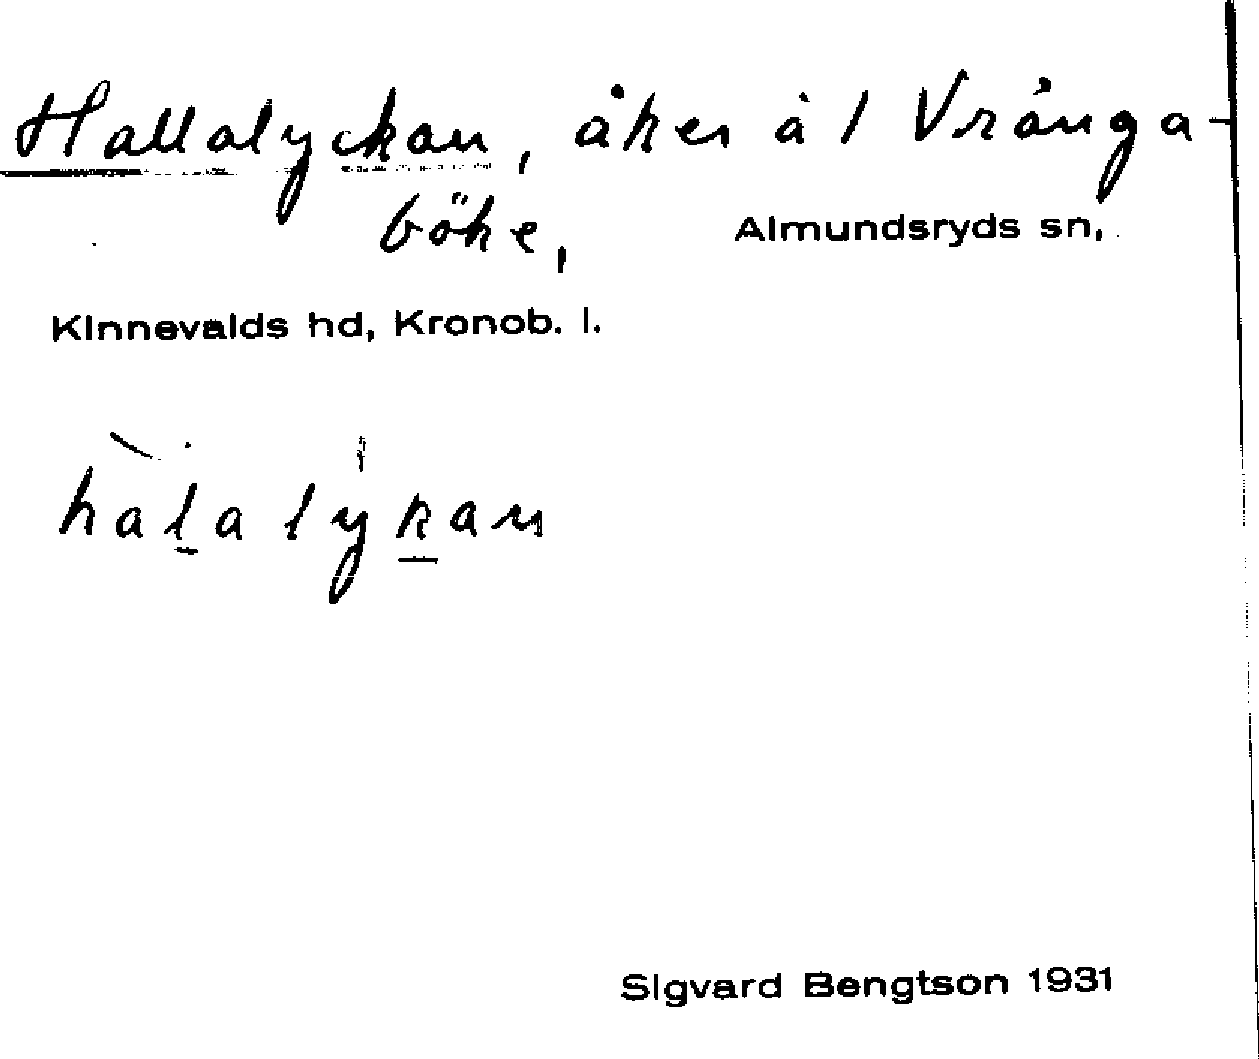 Hallalyckan, åker å 1 Vrånga-
böke, Almundsryds sn,
Kinnevalds hd, Kronob. l.
hàlalýkan
Sigvard Bengtson 1931